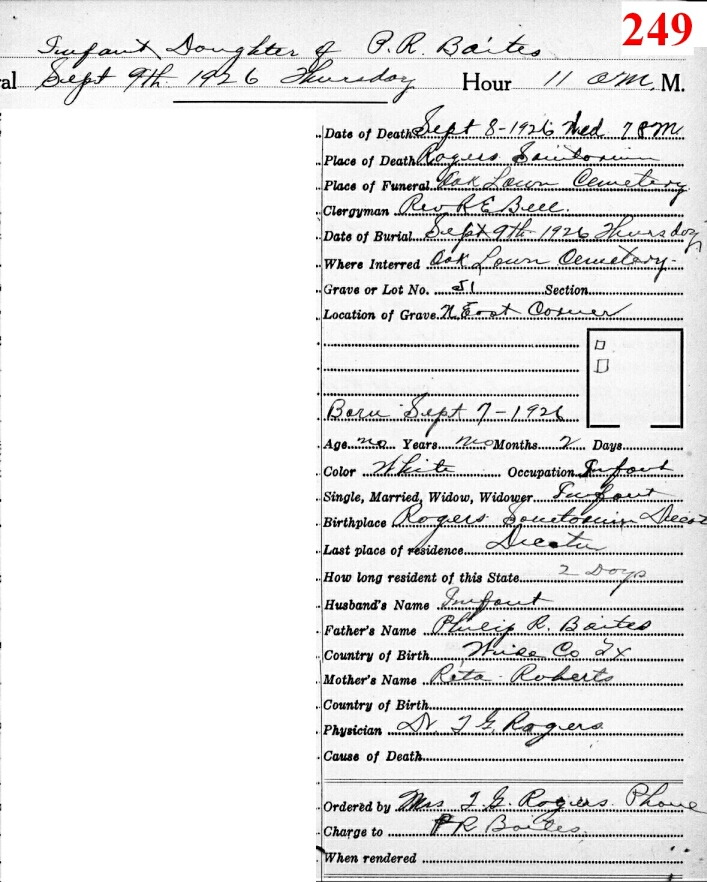 249
Infant Daughter of P.R. Baites
al Sept 9th 1926 Thursday Hour 11 A.M. M.
Date of Death Sept 8-1926 Wed 7 P.M.
Place of Death Rogers Sanitorium
Place of Funeral Oak Lawn Cemetery
Clergyman Rev R E Bell.
Date of Burial Sept 9th-1926 Thursday
Where Interred Oak Lawn Cemetery-
Grave or Lot No. 51 Section
Location of Grave N. East Corner
Born Sept 7-1926
Age no Years no Months 2 Days
Color White Occupation Infant
Single, Married, Widow, Widower Infant
Birthplace Rogers Sanitorium
Last place of residence Decatur
How long resident of this State 2 Days
Husband's Name Infant
Father's Name Philip R. Baites
Country of Birth Wise Co Tx
Mother's Name Reta Roberts
Country of Birth
Physician Dr. T G. Rogers
Cause of Death
Ordered by Mrs T. G. Rogers. Phone
Charge to P R Baites.
When rendered